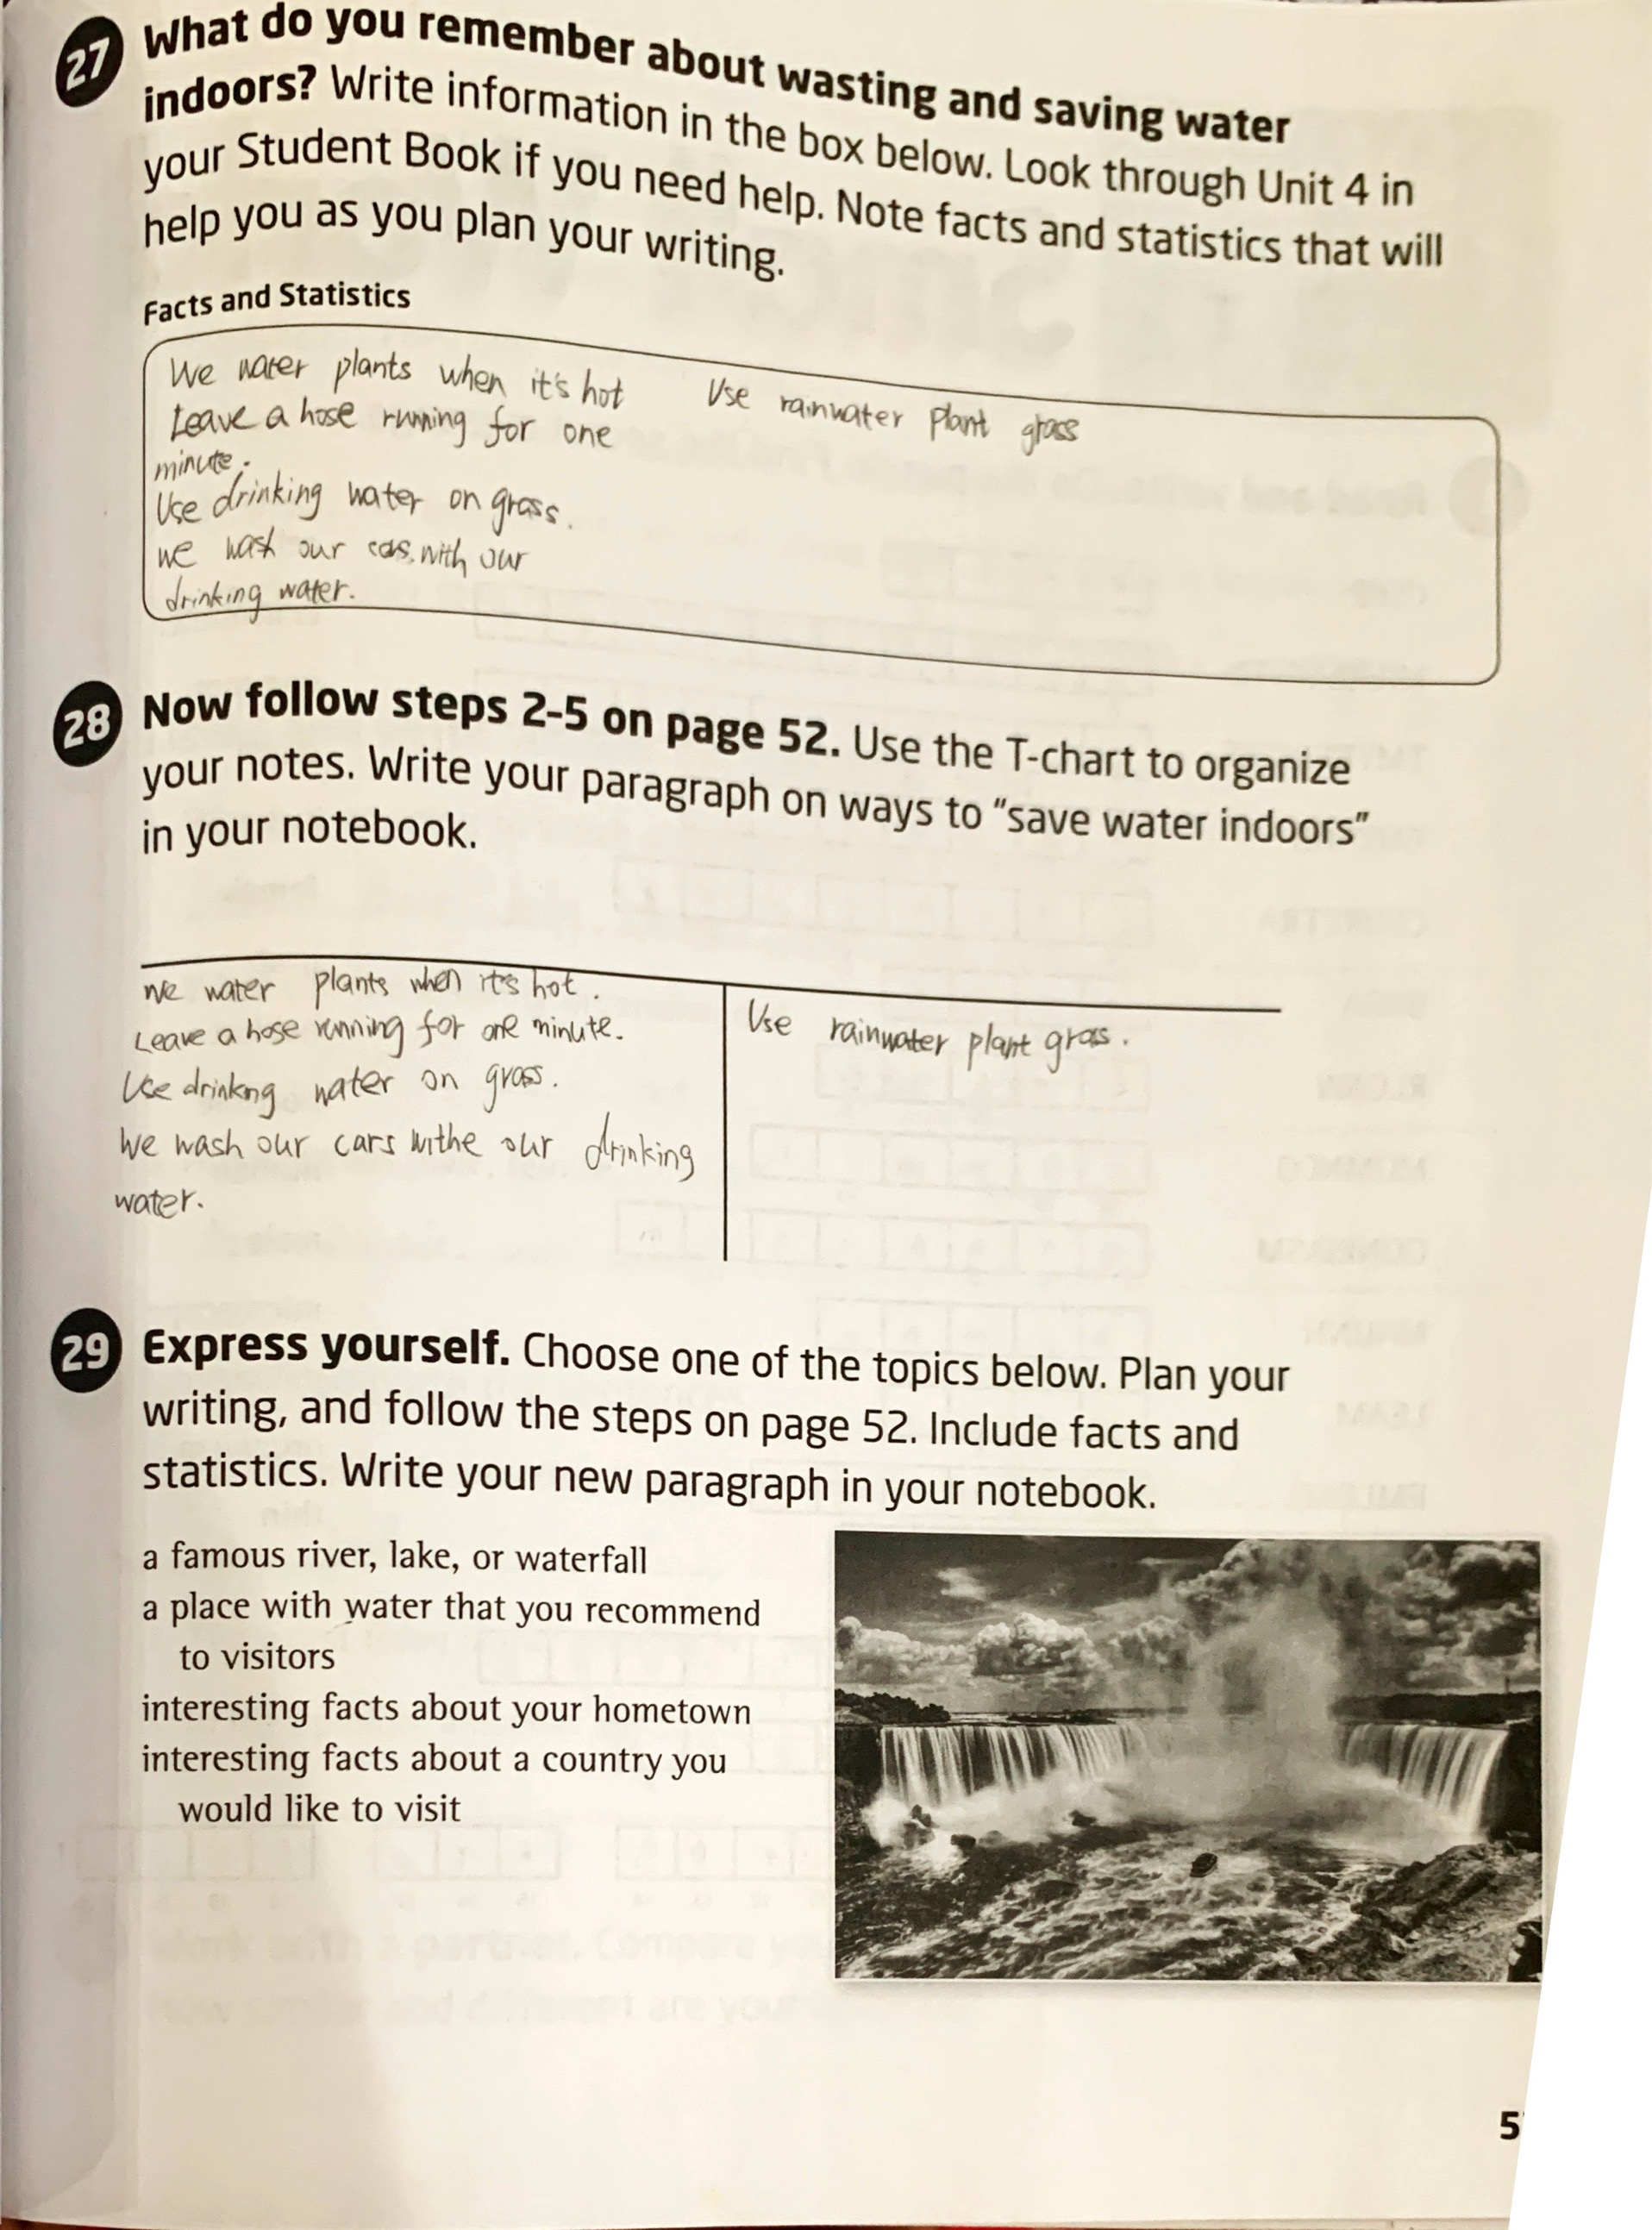 27 What do you remember about wasting and saving water
indoors? Write information in the box below. Look through Unit 4 in
your Student Book if you need help. Note facts and statistics that will
help you as you plan your writing.
Facts and Statistics
We water plants when it's hot
Leave a hose running for one
minute.
Use drinking water on grass.
we wash our cars with our
drinking water.
Use rainwater plant grass
28 Now follow steps 2-5 on page 52. Use the T-chart to organize
your notes. Write your paragraph on ways to "save water indoors"
in your notebook.
We water plants when it's hot.
Leave a hose running for one minute.
Use drinking water on grass.
We wash our cars withe our drinking
water.
Use rainwater plant grass.
29 Express yourself. Choose one of the topics below. Plan your
writing, and follow the steps on page 52. Include facts and
statistics. Write your new paragraph in your notebook.
a famous river, lake, or waterfall
a place with water that you recommend
to visitors
interesting facts about your hometown
interesting facts about a country you
would like to visit
5